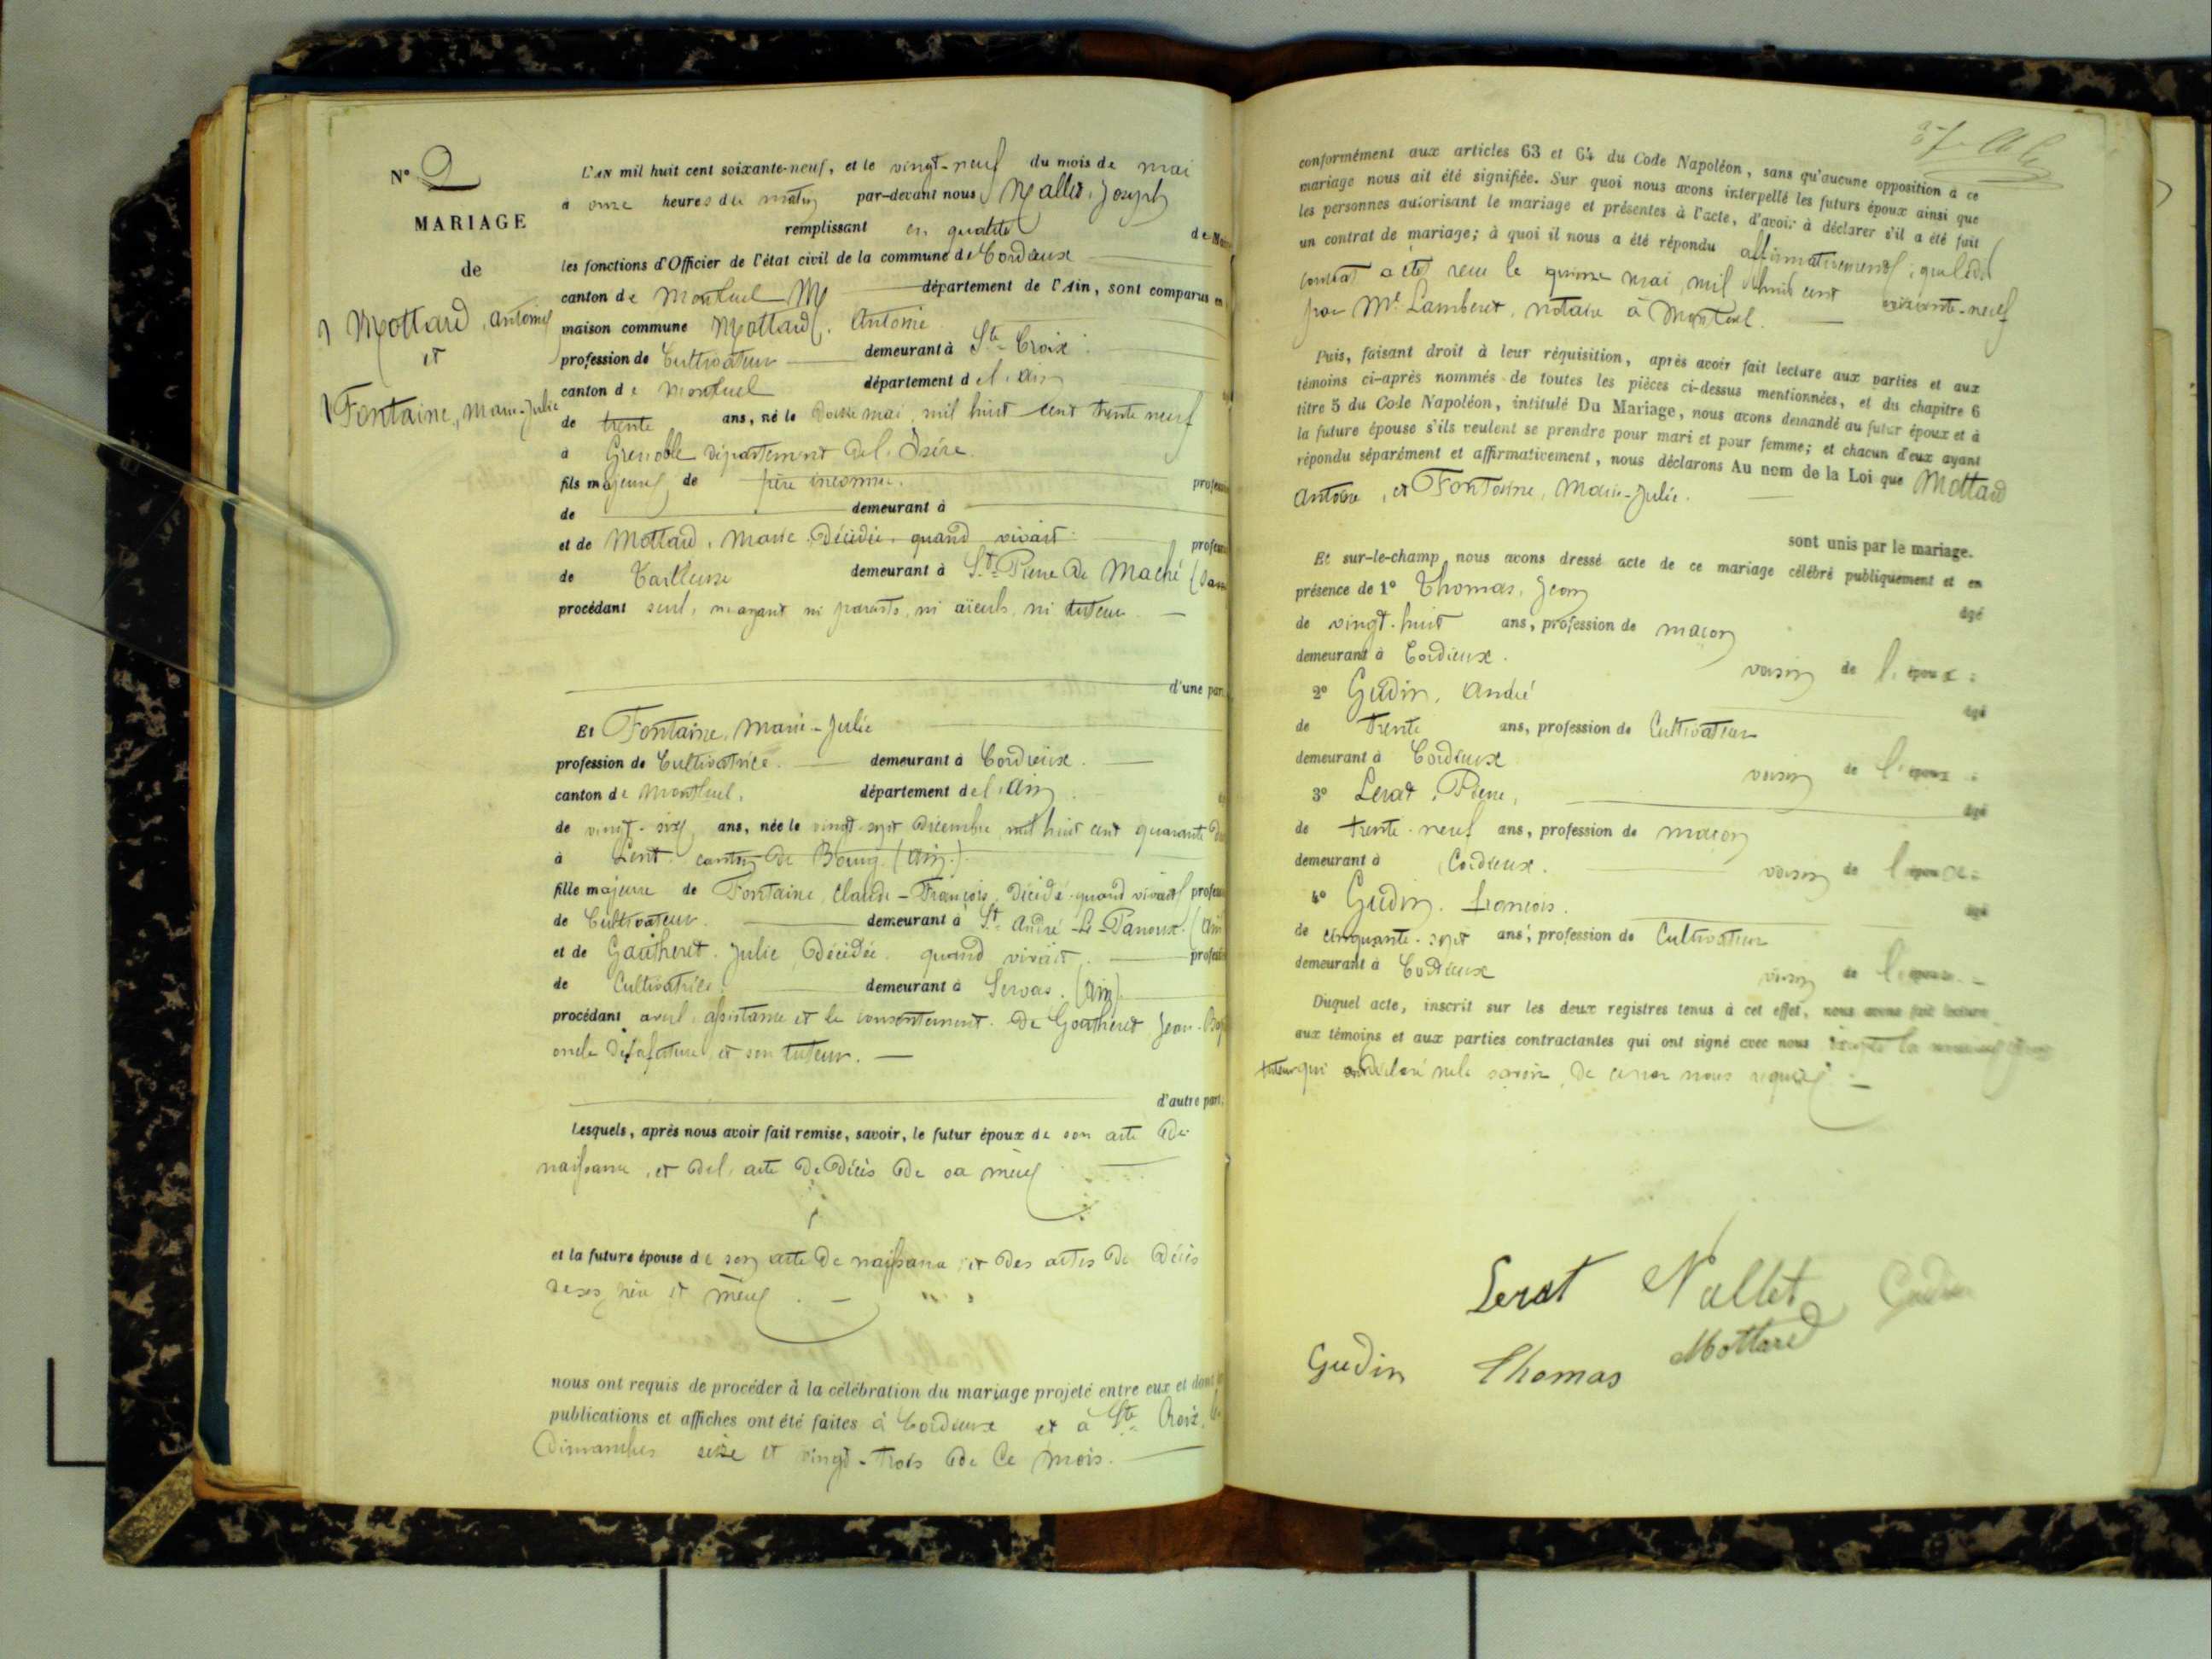 N° 2
MARIAGE
de
Mottard, Antoine
et
Fontaine, Marie-Julie
L'AN mil huit cent soixante-neuf, et le vingt-neuf du mois de mai
à onze heures du matin par-devant nous Nallet, Joseph
remplissant en qualité de
les fonctions d'Officier de l'état civil de la commune de Cordieux
canton de Montluel département de l'Ain, sont comparus en
maison commune Mottard, Antoine
profession de Cultivateur demeurant à Ste Croix
canton de Montluel département de l'Ain
de trente ans, né le douze mai, mil huit cent trente neuf
à Grenoble département de l'Isère.
fils majeur de père inconnu.
de demeurant à
et de Mottard, Marie Décédée, quand vivait
de Tailleuse demeurant à St Pierre de Maché
procédant seul, n'ayant ni parents, ni aïeuls, ni tuteur.
d'une part
Et Fontaine, Marie-Julie
profession de Cultivatrice. demeurant à Cordieux.
canton de Montluel, département de l'Ain
de vingt-six ans, née le vingt-sept Décembre mil huit cent quarante
à Lent canton de Bourg (Ain).
fille majeure de Fontaine, Claude-François, Décédé quand vivait
de Cultivateur. demeurant à St André-Le-Panoux. (Ain
et de Gautheret, Julie Décédée. quand vivait.
de Cultivatrice. demeurant à Servas. (Ain).
procédant avec l'assistance et le consentement de Gautheret Jean-
oncle de la future, et son tuteur.
d'autre part.
Lesquels, après nous avoir fait remise, savoir, le futur époux de son acte de
naissance, et de l'acte de Décès de sa mère
et la future épouse de son acte de naissance, et des actes de Décès
de ses père et mère.
nous ont requis de procéder à la célébration du mariage projeté entre eux et dont
publications et affiches ont été faites à Cordieux et à Ste Croix,
Dimanches seize et vingt-trois de ce mois.
conformément aux articles 63 et 64 du Code Napoléon, sans qu'aucune opposition à ce
mariage nous ait été signifiée. Sur quoi nous avons interpellé les futurs époux ainsi que
les personnes autorisant le mariage et présentes à l'acte, d'avoir à déclarer s'il a été fait
un contrat de mariage; à quoi il nous a été répondu affirmativement, que ledit
contrat a été reçu le quinze mai, mil huit cent soixante-neuf
par Me Lamberet, notaire à Montluel.
Puis, faisant droit à leur réquisition, après avoir fait lecture aux parties et aux
témoins ci-après nommés de toutes les pièces ci-dessus mentionnées, et du chapitre 6
titre 5 du Code Napoléon, intitulé Du Mariage, nous avons demandé au futur époux et à
la future épouse s'ils veulent se prendre pour mari et pour femme; et chacun d'eux ayant
répondu séparément et affirmativement, nous déclarons Au nom de la Loi que Mottard
Antoine, et Fontaine, Marie-Julie.
sont unis par le mariage.
Et sur-le-champ nous avons dressé acte de ce mariage célébré publiquement et en
présence de 1° Thomas, Jean âgé
de vingt-huit ans, profession de maçon
demeurant à Cordieux. voisin de l'époux
2° Gudin, André âgé
de trente ans, profession de Cultivateur
demeurant à Cordieux voisin de l'époux
3° Lerat, Pierre, âgé
de trente-neuf ans, profession de maçon
demeurant à Cordieux. voisin de
4° Gudin, François. âgé
de cinquante-sept ans, profession de Cultivateur
demeurant à Cordieux voisin de l'épouse
Duquel acte, inscrit sur les deux registres tenus à cet effet, nous avons fait lecture
aux témoins et aux parties contractantes qui ont signé avec nous
tuteur qui ont déclaré ne le savoir de ce par nous requis.
Lerat Nallet Gudin
Gudin Thomas Mottard